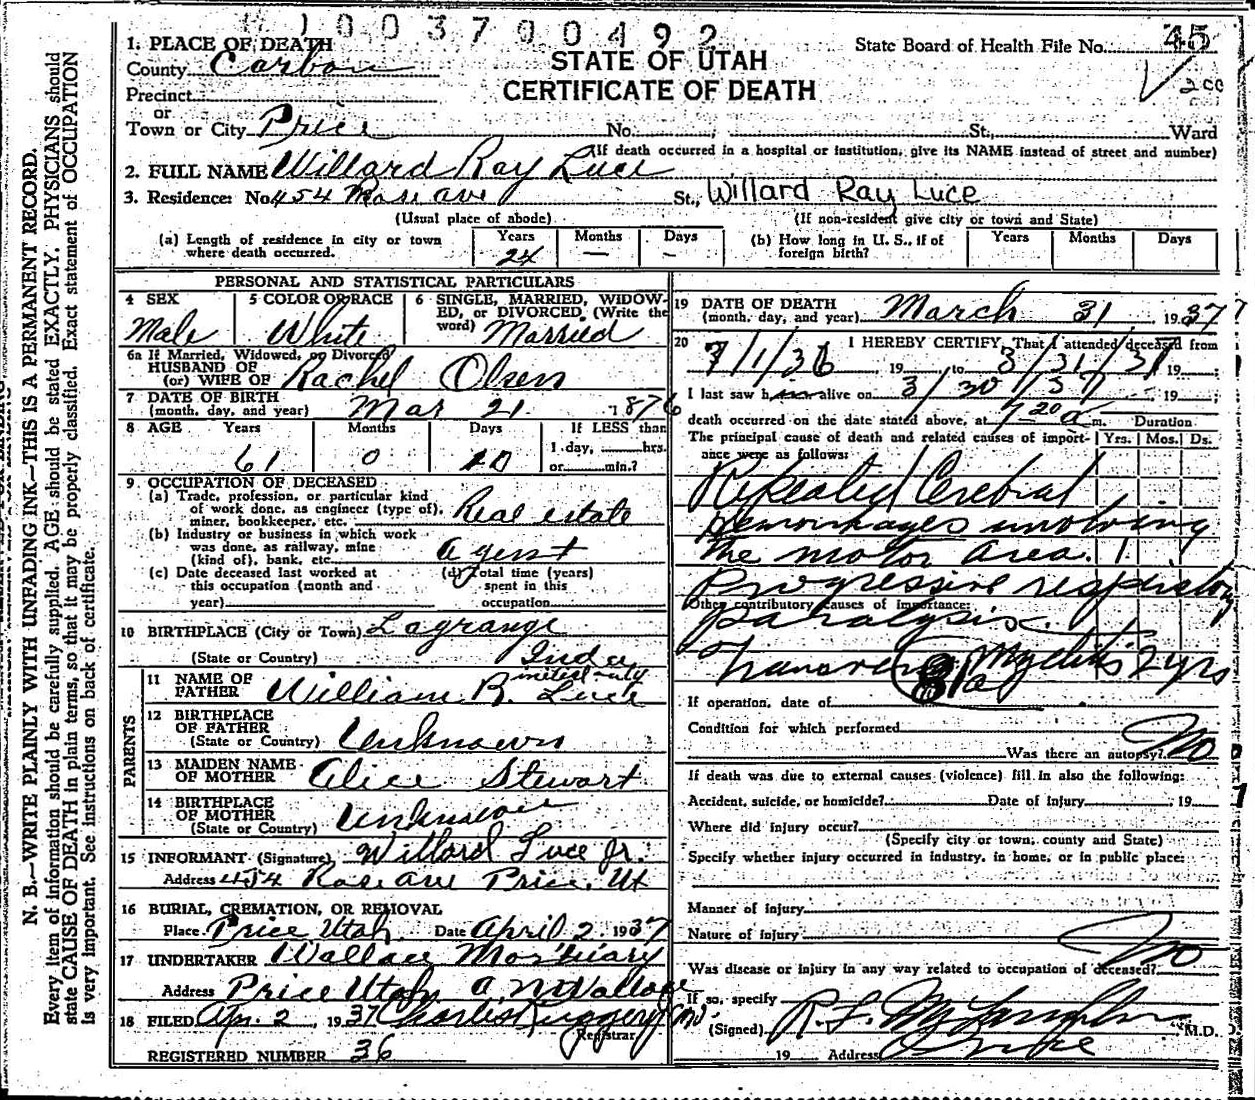 1003700492
1. PLACE OF DEATH
County Carbon
STATE OF UTAH
CERTIFICATE OF DEATH
State Board of Health File No. 45
200
Precinct
or
Town or City Price No. St., Ward
(If death occurred in a hospital or institution, give its NAME instead of street and number)
2. FULL NAME Willard Ray Luce
3. Residence: No. 454 Rose ave St., Willard Ray Luce
(Usual place of abode) (If non-resident give city or town and State)
(a) Length of residence in city or town where death occurred. Years 24 Months — Days —
(b) How long in U. S., if of foreign birth? Years Months Days
PERSONAL AND STATISTICAL PARTICULARS
4 SEX Male
5 COLOR OR RACE White
6 SINGLE, MARRIED, WIDOWED, or DIVORCED, (Write the word) Married
6a If Married, Widowed, or Divorced
HUSBAND OF
(or) WIFE OF Rachel Olsen
7 DATE OF BIRTH
(month, day, and year) Mar 21 1876
8 AGE Years 61 Months 0 Days 10 If LESS than
1 day, hrs.
or min.?
9 OCCUPATION OF DECEASED
(a) Trade, profession, or particular kind
of work done, as engineer (type of),
miner, bookkeeper, etc. Real estate
(b) Industry or business in which work
was done, as railway, mine
(kind of), bank, etc. agent
(c) Date deceased last worked at
this occupation (month and
year)
(d) Total time (years)
spent in this
occupation
10 BIRTHPLACE (City or Town) Lagrange
(State or Country) Inda
11 NAME OF
FATHER William R. Luce
initial only
12 BIRTHPLACE
OF FATHER
(State or Country) Unknown
PARENTS
13 MAIDEN NAME
OF MOTHER Alice Stewart
14 BIRTHPLACE
OF MOTHER
(State or Country) Unknown
15 INFORMANT (Signature) Willard Luce Jr.
Address 454 Rose ave Price, Ut
16 BURIAL, CREMATION, OR REMOVAL
Place Price Utah Date April 2 1937
17 UNDERTAKER Wallace Mortuary
Address Price Utah A. N. Wallace
18 FILED Apr. 2, 1937 Charles Ruggeri MD.
Registrar
REGISTERED NUMBER 36
19 DATE OF DEATH
(month, day, and year) March 31 1937
20 I HEREBY CERTIFY, That I attended deceased from
7/1/36, 19 to 3/31/37 19
I last saw him alive on 3/30/37, 19
death occurred on the date stated above, at 7 20 a m. Duration
The principal cause of death and related causes of importance were as follows: Yrs. Mos. Ds.
Repeated Cerebral
Hemorrhages involving
the motor area.
Progressive respiratory
Other contributory causes of importance:
paralysis.
Transverse Myelitis 2 yrs
81a
If operation, date of
Condition for which performed
Was there an autopsy? No
If death was due to external causes (violence) fill in also the following:
Accident, suicide, or homicide? Date of injury , 19
Where did injury occur?
(Specify city or town, county and State)
Specify whether injury occurred in industry, in home, or in public place:
Manner of injury
Nature of injury
Was disease or injury in any way related to occupation of deceased? No
If so, specify
(Signed) R. F. McLaughlin M.D.
19 Address Price
N. B.—WRITE PLAINLY WITH UNFADING INK—THIS IS A PERMANENT RECORD.
Every item of information should be carefully supplied. AGE should be stated EXACTLY. PHYSICIANS should
state CAUSE OF DEATH in plain terms, so that it may be properly classified. Exact statement of OCCUPATION
is very important. See instructions on back of certificate.